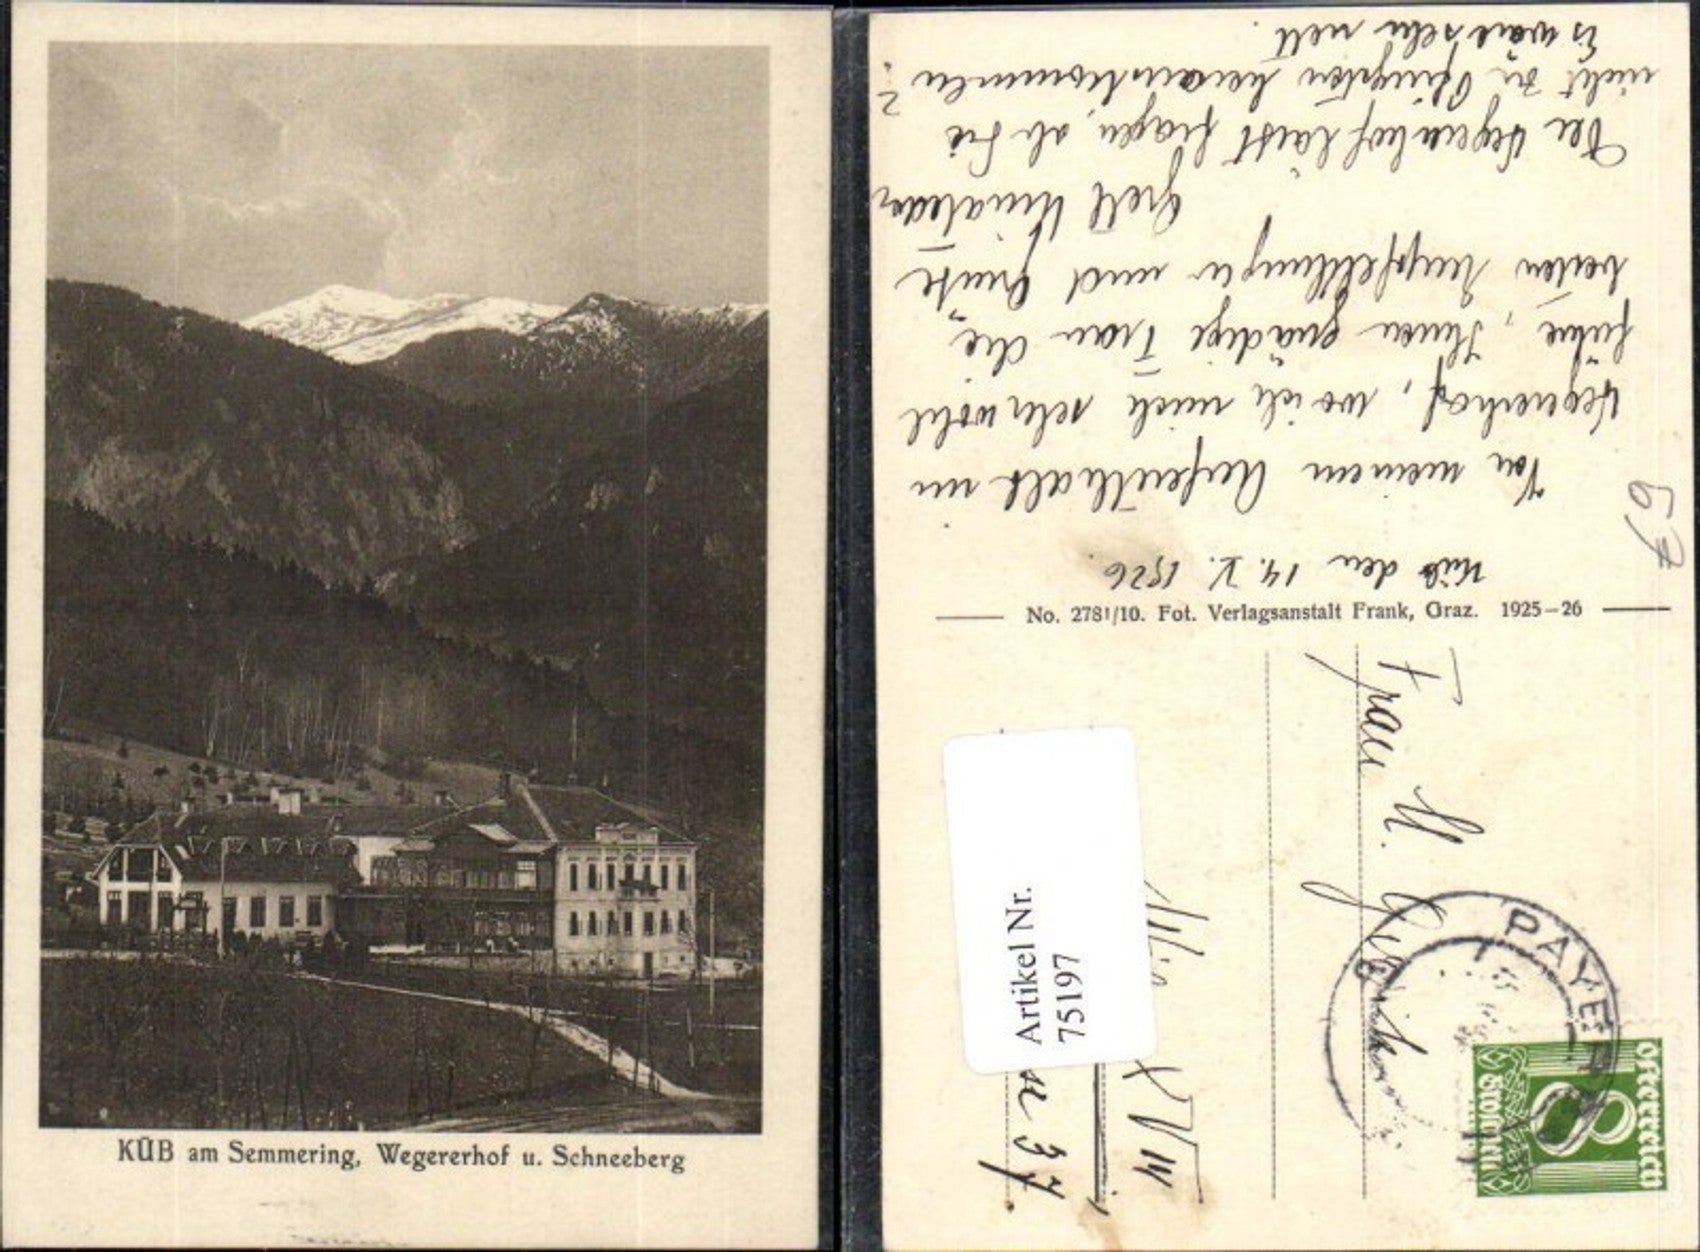 KÜB am Semmering, Wegererhof u. Schneeberg
Küb den 14. V. 1926.
Von meinem Aufenthalt im
Wegererhof, wo ich mich sehr wohl
fühle, Ihnen gnädige Frau die
besten Empfehlungen und Grüße
Grett
Der Wegererhof lässt fragen, ob Sie
nicht zu Pfingsten herauskommen?
Es wäre sehr nett.
No. 2781/10. Fot. Verlagsanstalt Frank, Graz. 1925-26
Frau M.
Wien XVIII
37
Artikel Nr.
75197
PAYER
Österreich
8
Groschen
67